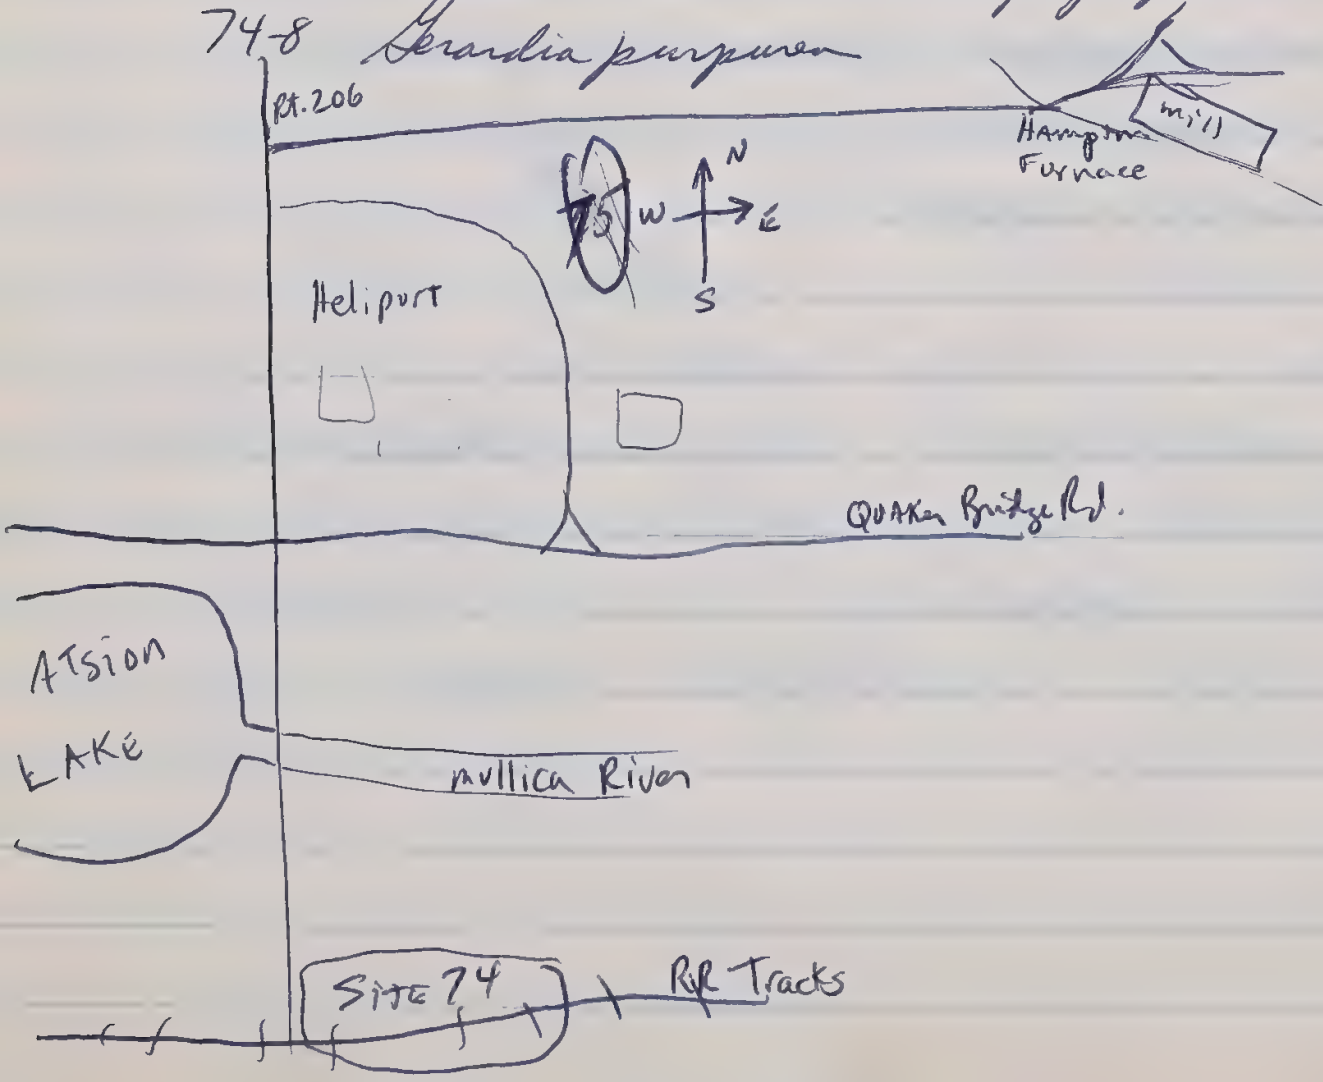 74-8 Gerardia purpurea
Rt. 206
mill
Hampton
Furnace
N
W E
S
75
Heliport
Quaker Bridge Rd.
ATsion
LAKE
mullica River
SiTE 74
RR Tracks